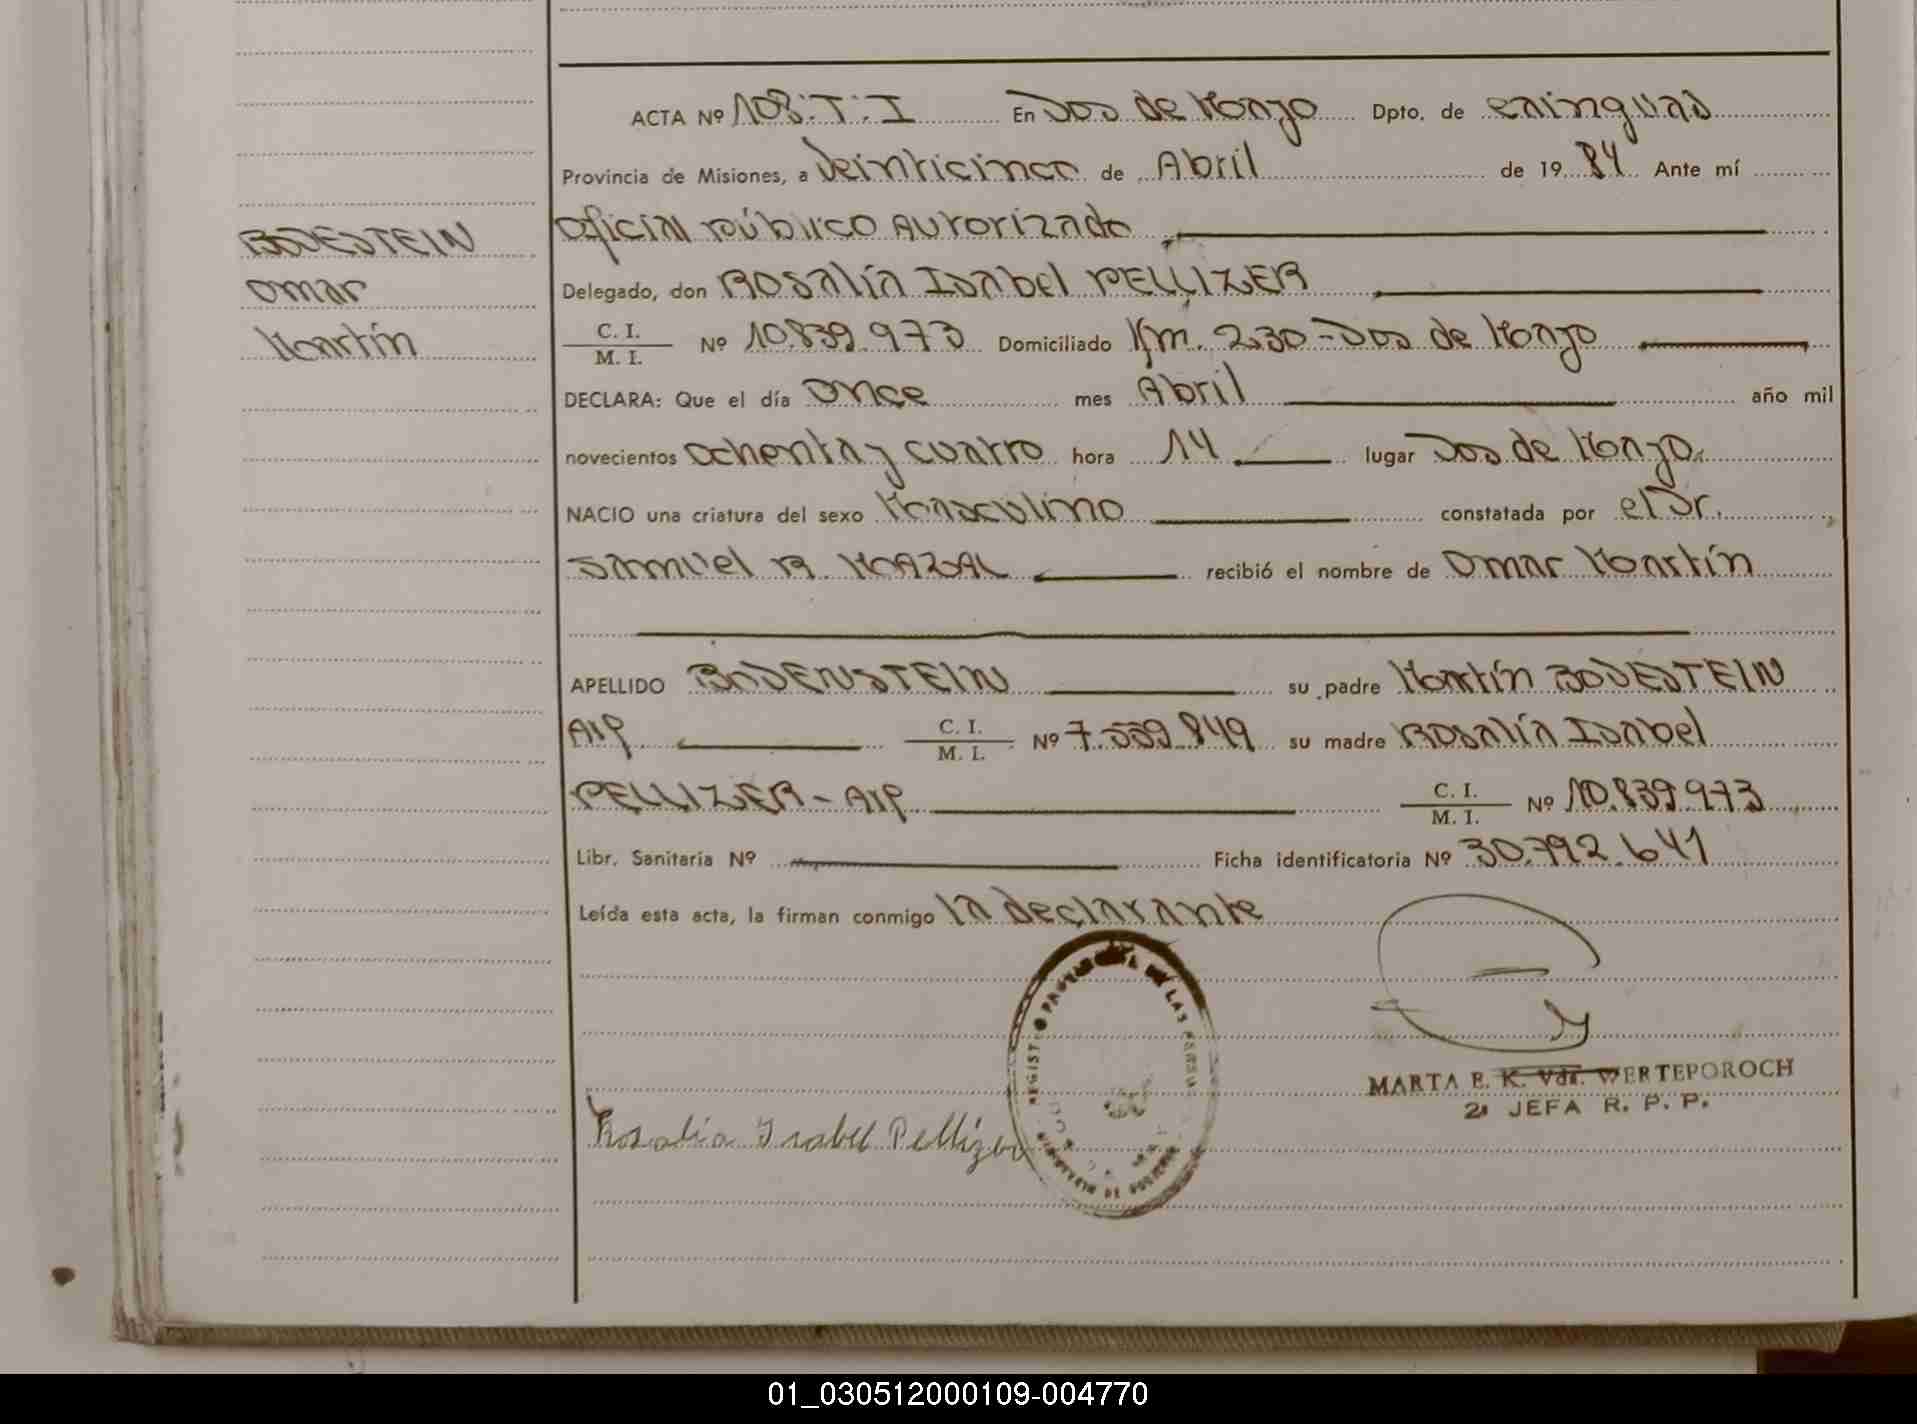 ACTA Nº 108.T.I En Dos de Mayo Dpto. de Cainguas
Provincia de Misiones, a Veinticinco de Abril de 1984 Ante mí
Oficial público Autorizado
Delegado, don Rosalía Isabel PELLIZER
C. I.
M. I. Nº 10.839.973 Domiciliado Km. 230 - Dos de Mayo
DECLARA: Que el día once mes Abril año mil
novecientos ochenta y cuatro hora 14 lugar Dos de Mayo.
NACIO una criatura del sexo Masculino constatada por el Dr.
Samuel R. MAZAL recibió el nombre de Omar Martín
APELLIDO BODENSTEIN su padre Martín BODESTEIN
Arg C. I.
M. I. Nº 7.559.849 su madre Rosalía Isabel
PELLIZER - Arg C. I.
M. I. Nº 10.839.973
Libr. Sanitaria Nº Ficha identificatoria Nº 30.792.641
Leída esta acta, la firman conmigo la declarante
BODESTEIN
Omar
Martín
Rosalia Isabel Pellizer
MARTA E. K. Vda. WERTEPOROCH
2ª JEFA R. P. P.
01_030512000109-004770